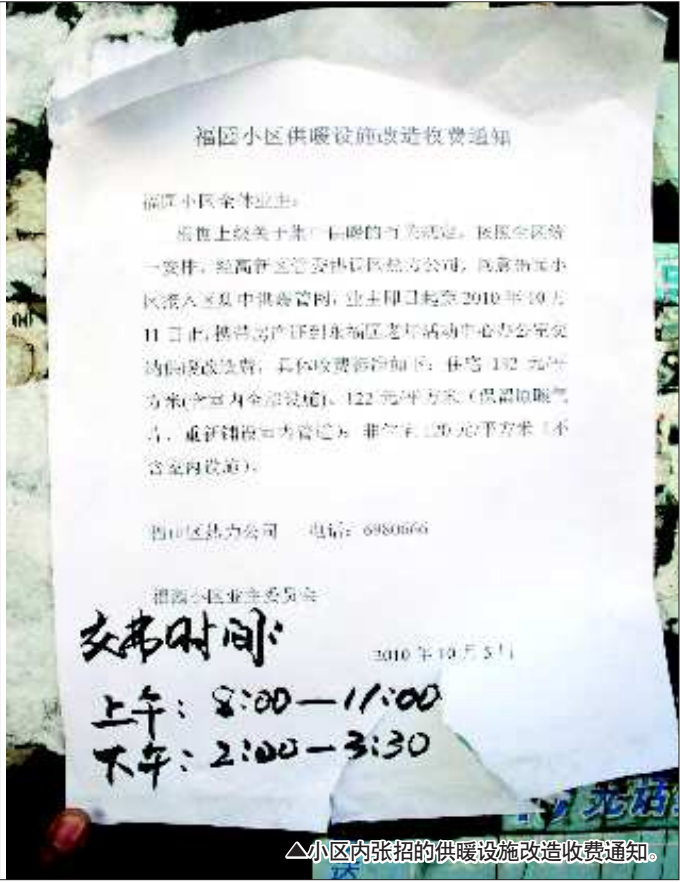 福园小区供暖设施改造收费通知
福园小区全体业主：
根据上级关于集中供暖的有关规定，按照全区统
一安排，经高新区管委 区热力公司，同意福园小
区接入区集中供暖管网，业主即日起至2010年10月
11日止，携带房产证到东福园老年活动中心办公室交
纳供暖改造费，具体收费标准如下：住宅 元/平
方米(含室内全部设施)、122元/平方米（保留原暖气
片，重新铺设室内管道）；非住宅120元/平方米（不
含室内设施）。
福山区热力公司 电话：6980666
福园小区业主委员会
2010年10月5日
交费时间：
上午：8:00—11:00
下午：2:00—3:30
▲小区内张招的供暖设施改造收费通知。